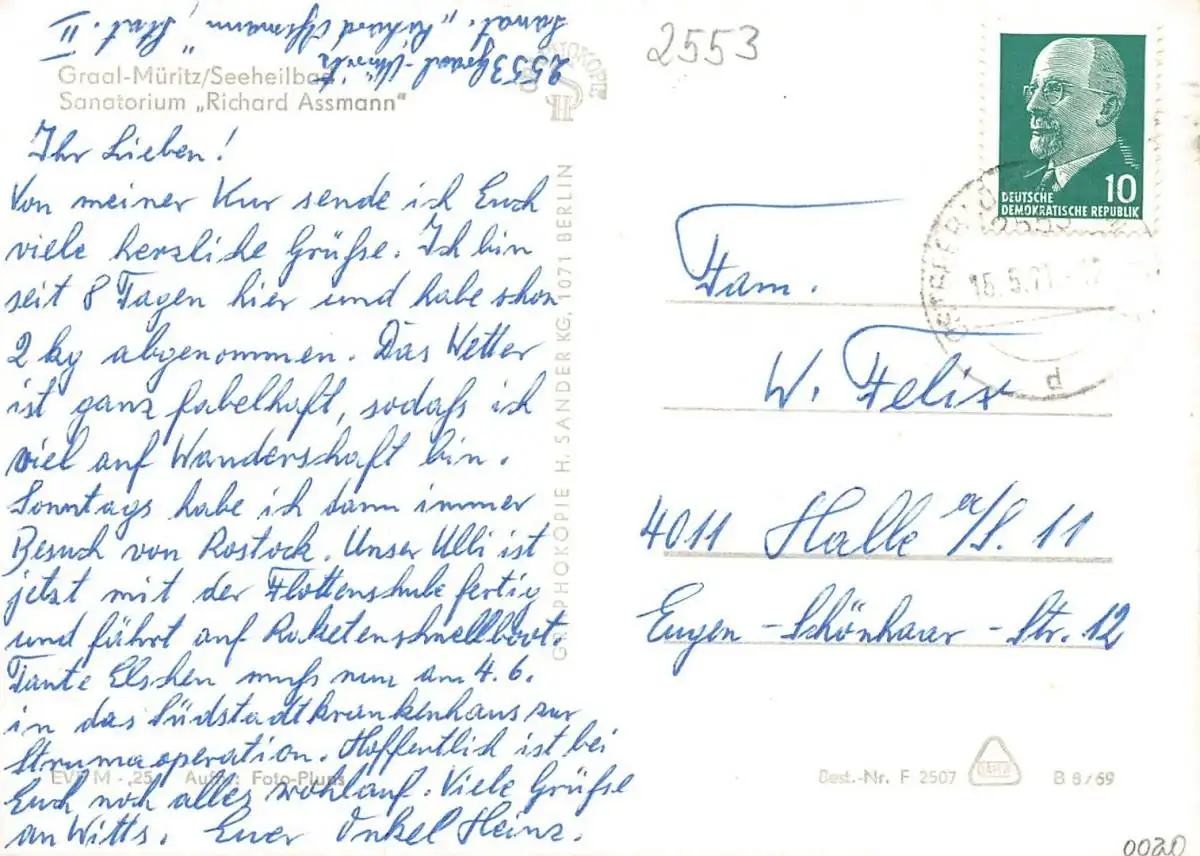 Sanat. „Richard Assmann", Stat. II
2553 Graal-Müritz
Graal-Müritz/Seeheilbad
Sanatorium „Richard Assmann"
Ihr Lieben!
Von meiner Kur sende ich Euch
viele herzliche Grüße. Ich bin
seit 8 Tagen hier und habe schon
2 kg abgenommen. Das Wetter
ist ganz fabelhaft, sodaß ich
viel auf Wanderschaft bin.
Sonntags habe ich dann immer
Besuch von Rostock. Unser Ulli ist
jetzt mit der Flottenschule fertig
und fährt auf Raketenschnellboot.
Tante Elschen muß nun am 4.6.
in das Südstadtkrankenhaus zur
Strumaoperation. Hoffentlich ist bei
Euch noch alles wohlauf. Viele Grüße
an Witts. Euer Onkel Heinz.
EVP M -,25 Aufn.: Foto-Plups
GRAPHOKOPIE H. SANDER KG, 1071 BERLIN
2553
DEUTSCHE
DEMOKRATISCHE REPUBLIK
10
15.5.71
d
Fam.
W. Felix
4011 Halle a/S. 11
Eugen-Schönhaar-Str. 12
Best.-Nr. F 2507
B 8/69
0020